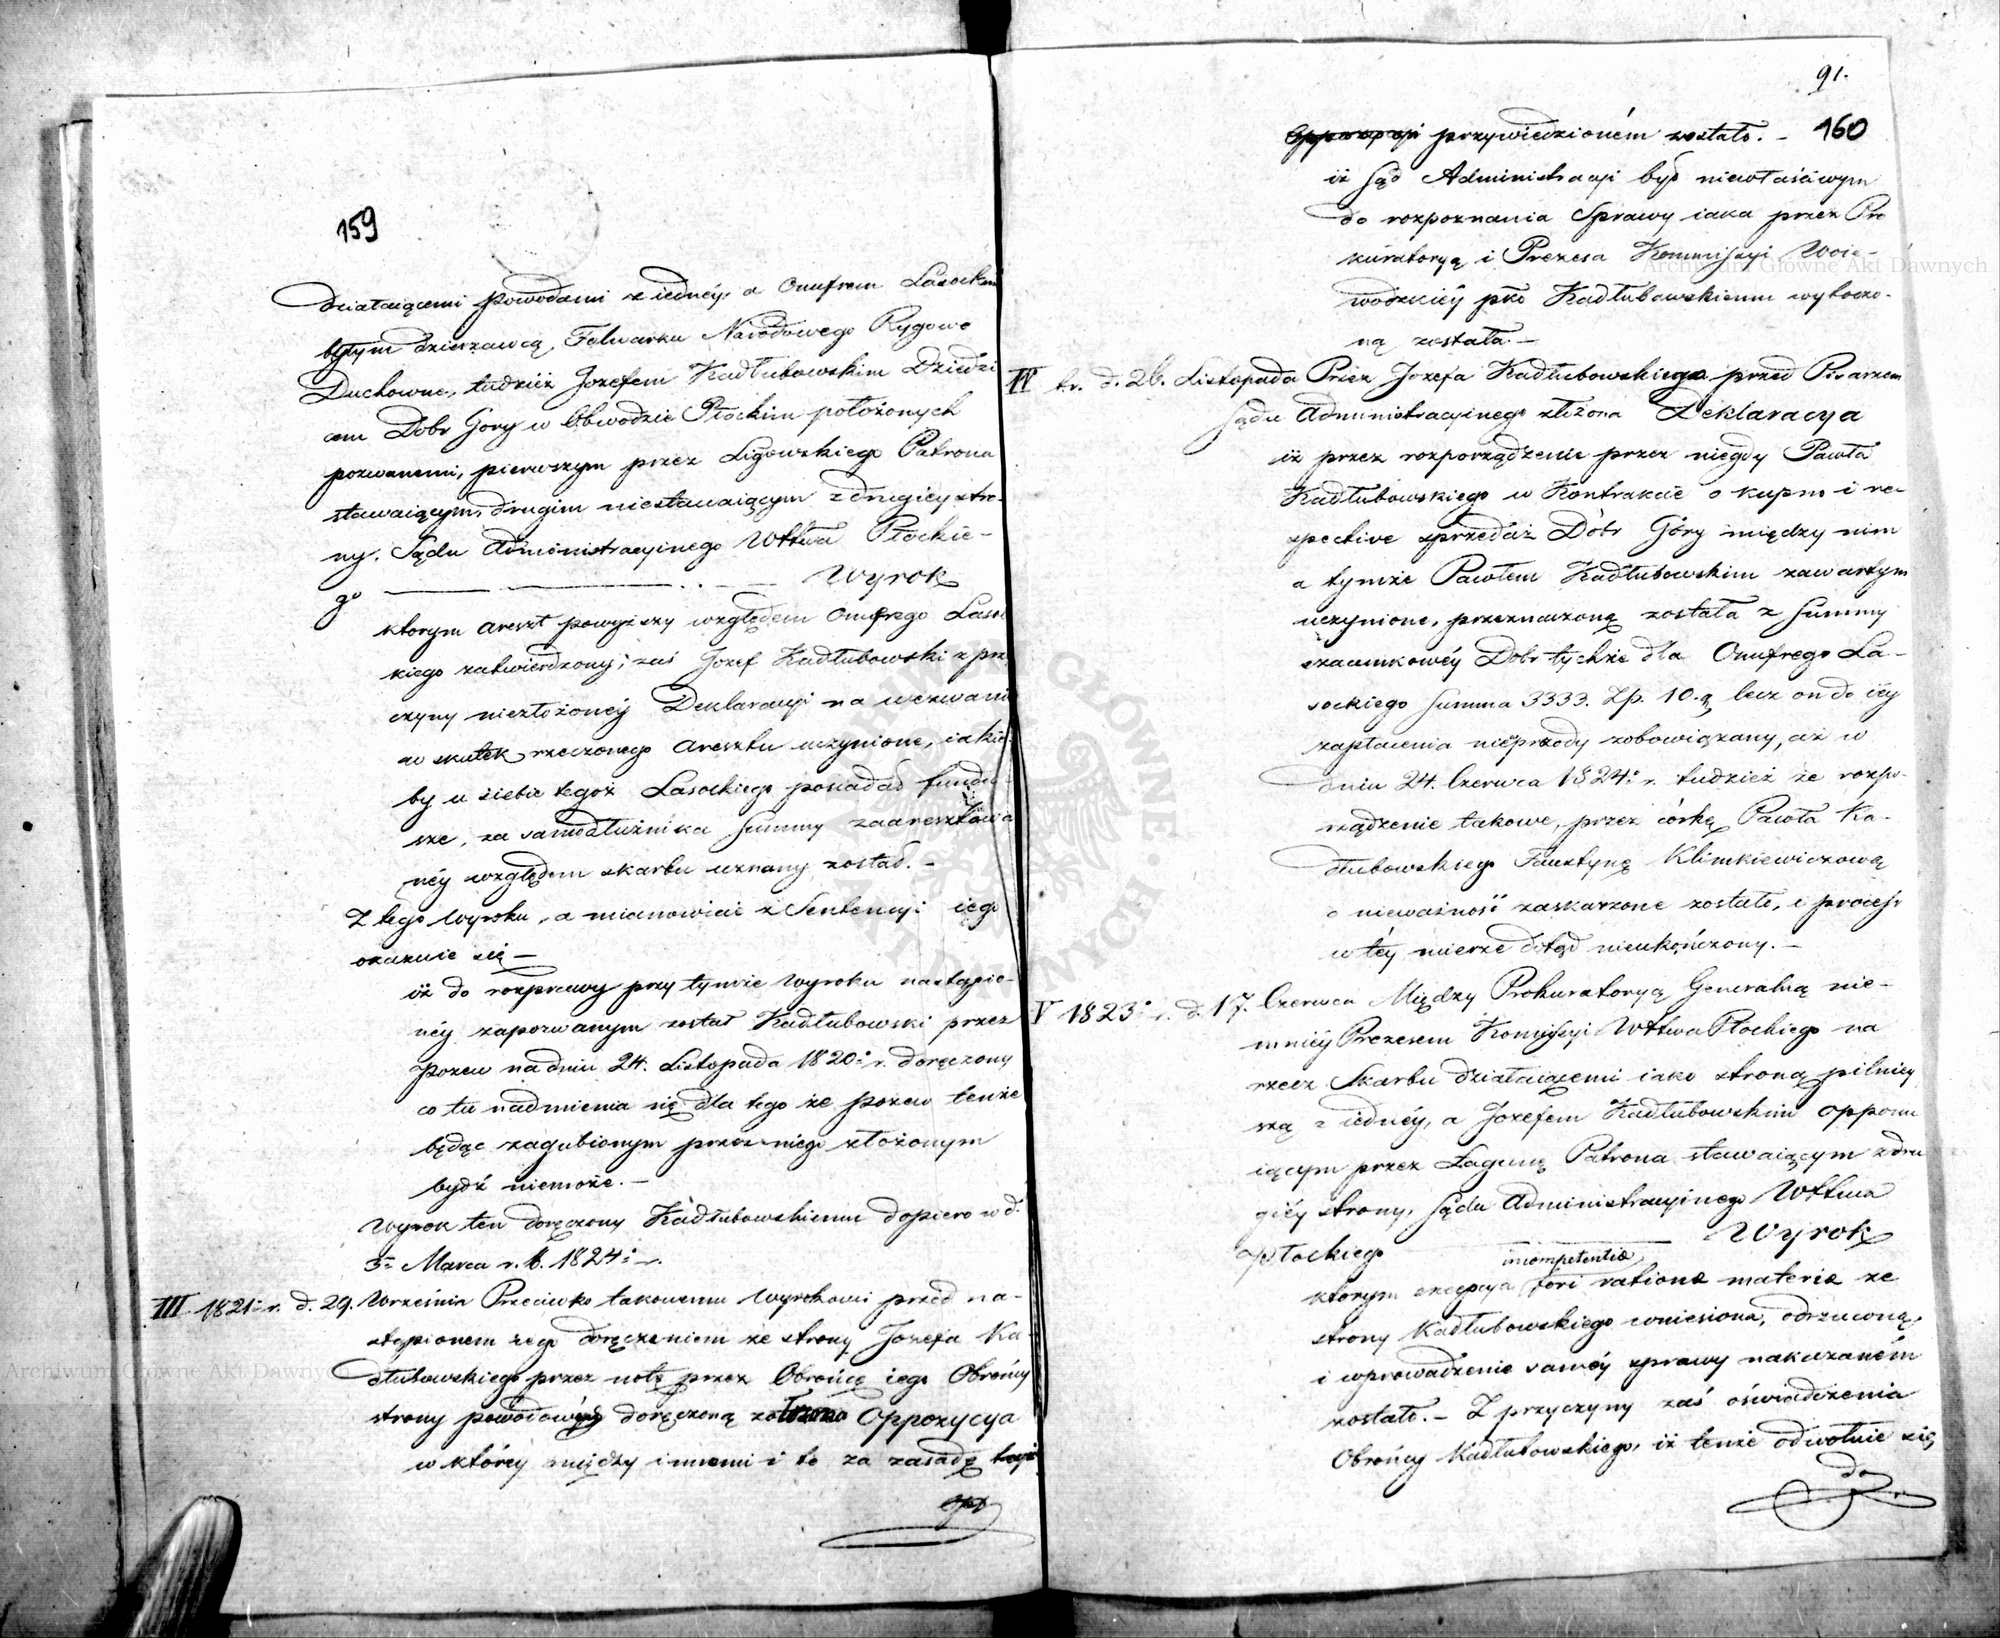 159
działaiącemi powodami z iedney, a Onufrem Lasockim
byłym dzierzawcą Folwarku Narodowego Rygowo
Duchowne, tudzież Jozefem Kadłubowskim Dziedzi
cem Dobr Gory w Obwodzie Płockim położonych
pozwanemi, pierwszym przez Ligowskiego Patrona
stawaiącym, drugim niestawaiącym z drugiey stro-
ny. Sądu Administracyinego Wttwa Płockie-
go Wyrok
ktorym areszt powyższy względem Onufrego Lasoc
kiego zatwierdzony; zaś Jozef Kadłubowski z prz
czyny niezłożoney Deklaracyi na wezwanie
w skutek rzeczonego aresztu uczynione, iakie
by u siebie tegoż Lasockiego posiadał fundu-
sze, za samodłużnika Summy zaaresztowa
ney względem skarbu uznany został. -
Z tego Wyroku, a mianowicie z Sentencyi iego
okazuie się -
iż do rozprawy przy tymże Wyroku nastąpio-
ney zapozwanym został Kadłubowski przez
pozew na dniu 24. Listopada 1820.° r. doręczony
co tu nadmienia się dla tego że pozew tenże
będąc zagubionym przez niego złożonym
bydź niemoże. -
Wyrok ten doręczony Kadłubowskiemu dopiero w d.
3. Marca r. b. 1824.° r.
III 1821.° r. d. 29. Września Przeciwko takowemu Wyrokowi przed na-
stąpionem iego doręczeniem ze strony Jozefa Ka
dłubowskiego przez notę przez Obrońcę iego Obrońcy
strony powodowey doręczoną założona Oppozycya
w którey między innemi i to za zasadę teyże
91.
160
przywiedzioném zostało. -
iż Sąd Administracyi był niewłaściwym
do rozpoznania Sprawy iaka przez Pro
kuratoryą i Prezesa Kommissyi Woie-
wodzkiéy pko Kadłubowskiemu wytoczo-
ną została. -
IV tr. d. 26. Listopada Przez Jozefa Kadłubowskiego przed Pisarzem
Sądu Administracyinego złożona Deklaracya
iż przez rozporządzenie przez niegdy Pawła
Kadłubowskiego w Kontrakcie o kupno i re-
spective sprzedaż Dóbr Góry między nim
a tymże Pawłem Kadłubowskim zawartym
uczynione, przeznaczoną została z Summy
szacunkowéy Dobr tychże dla Onufrego La-
sockiego Summa 3333. Zp. 10. g lecz on do iéy
zapłacenia nieprzody zobowiązany, aż w
dniu 24. Czerwca 1824.° r. tudzież że rozpo-
rządzenie takowe, przez córkę Pawła Ka-
dłubowskiego Faustynę Klimkiewiczową
o nieważność zaskarzone zostało, i process
w téy mierze dotąd nieukończony. -
V 1823.° r. d. 17. Czerwca Między Prokuratoryą Generalną nie-
mniéy Prezesem Komissyi Wttwa Płockiego na
rzecz Skarbu działaiącemi iako stroną pilniey
szą z iednéy, a Jozefem Kadłubowskim oppon
iącym przez Łagunę Patrona stawaiącym z dru
giéy strony, Sądu Administracyinego Wttwa
Płockiego Wyrok
incompetentiæ
ktorym excepcya fori ratione materiæ ze
strony Kadłubowskiego wniesiona, odrzuconą,
i wprowadzenie saméy sprawy nakazaném
zostało. - Z przyczyny zaś oświadczenia
Obrońcy Kadłubowskiego, iż tenże odwołuie się
do
Archiwum Główne Akt Dawnych
Archiwum Główne Akt Dawnych